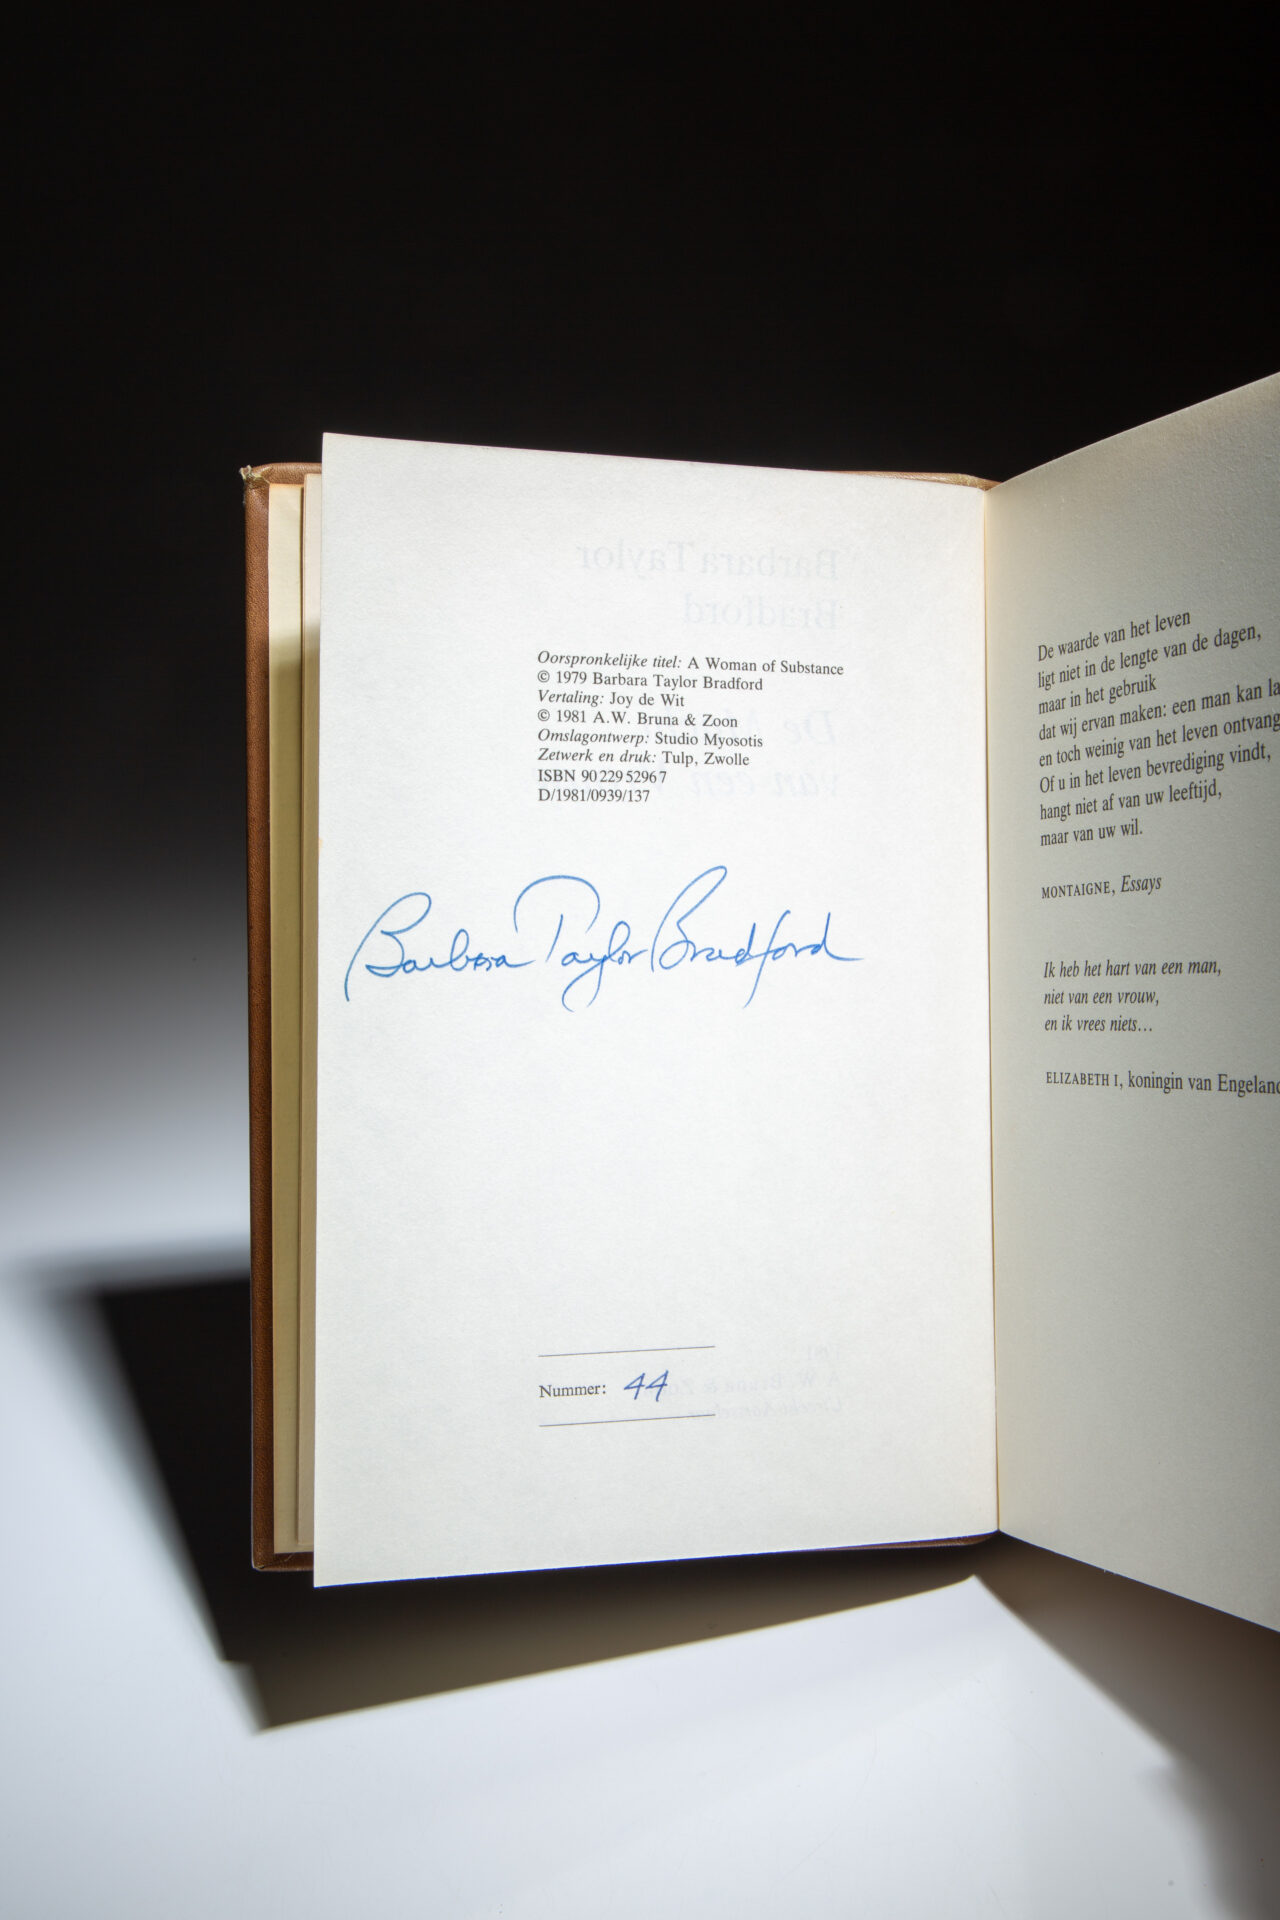 Oorspronkelijke titel: A Woman of Substance
© 1979 Barbara Taylor Bradford
Vertaling: Joy de Wit
© 1981 A.W. Bruna & Zoon
Omslagontwerp: Studio Myosotis
Zetwerk en druk: Tulp, Zwolle
ISBN 90 229 5296 7
D/1981/0939/137
Barbara Taylor Bradford
Nummer: 44
De waarde van het leven
ligt niet in de lengte van de dagen,
maar in het gebruik
dat wij ervan maken: een man kan la
en toch weinig van het leven ontvang
Of u in het leven bevrediging vindt,
hangt niet af van uw leeftijd,
maar van uw wil.
MONTAIGNE, Essays
Ik heb het hart van een man,
niet van een vrouw,
en ik vrees niets...
ELIZABETH I, koningin van Engeland